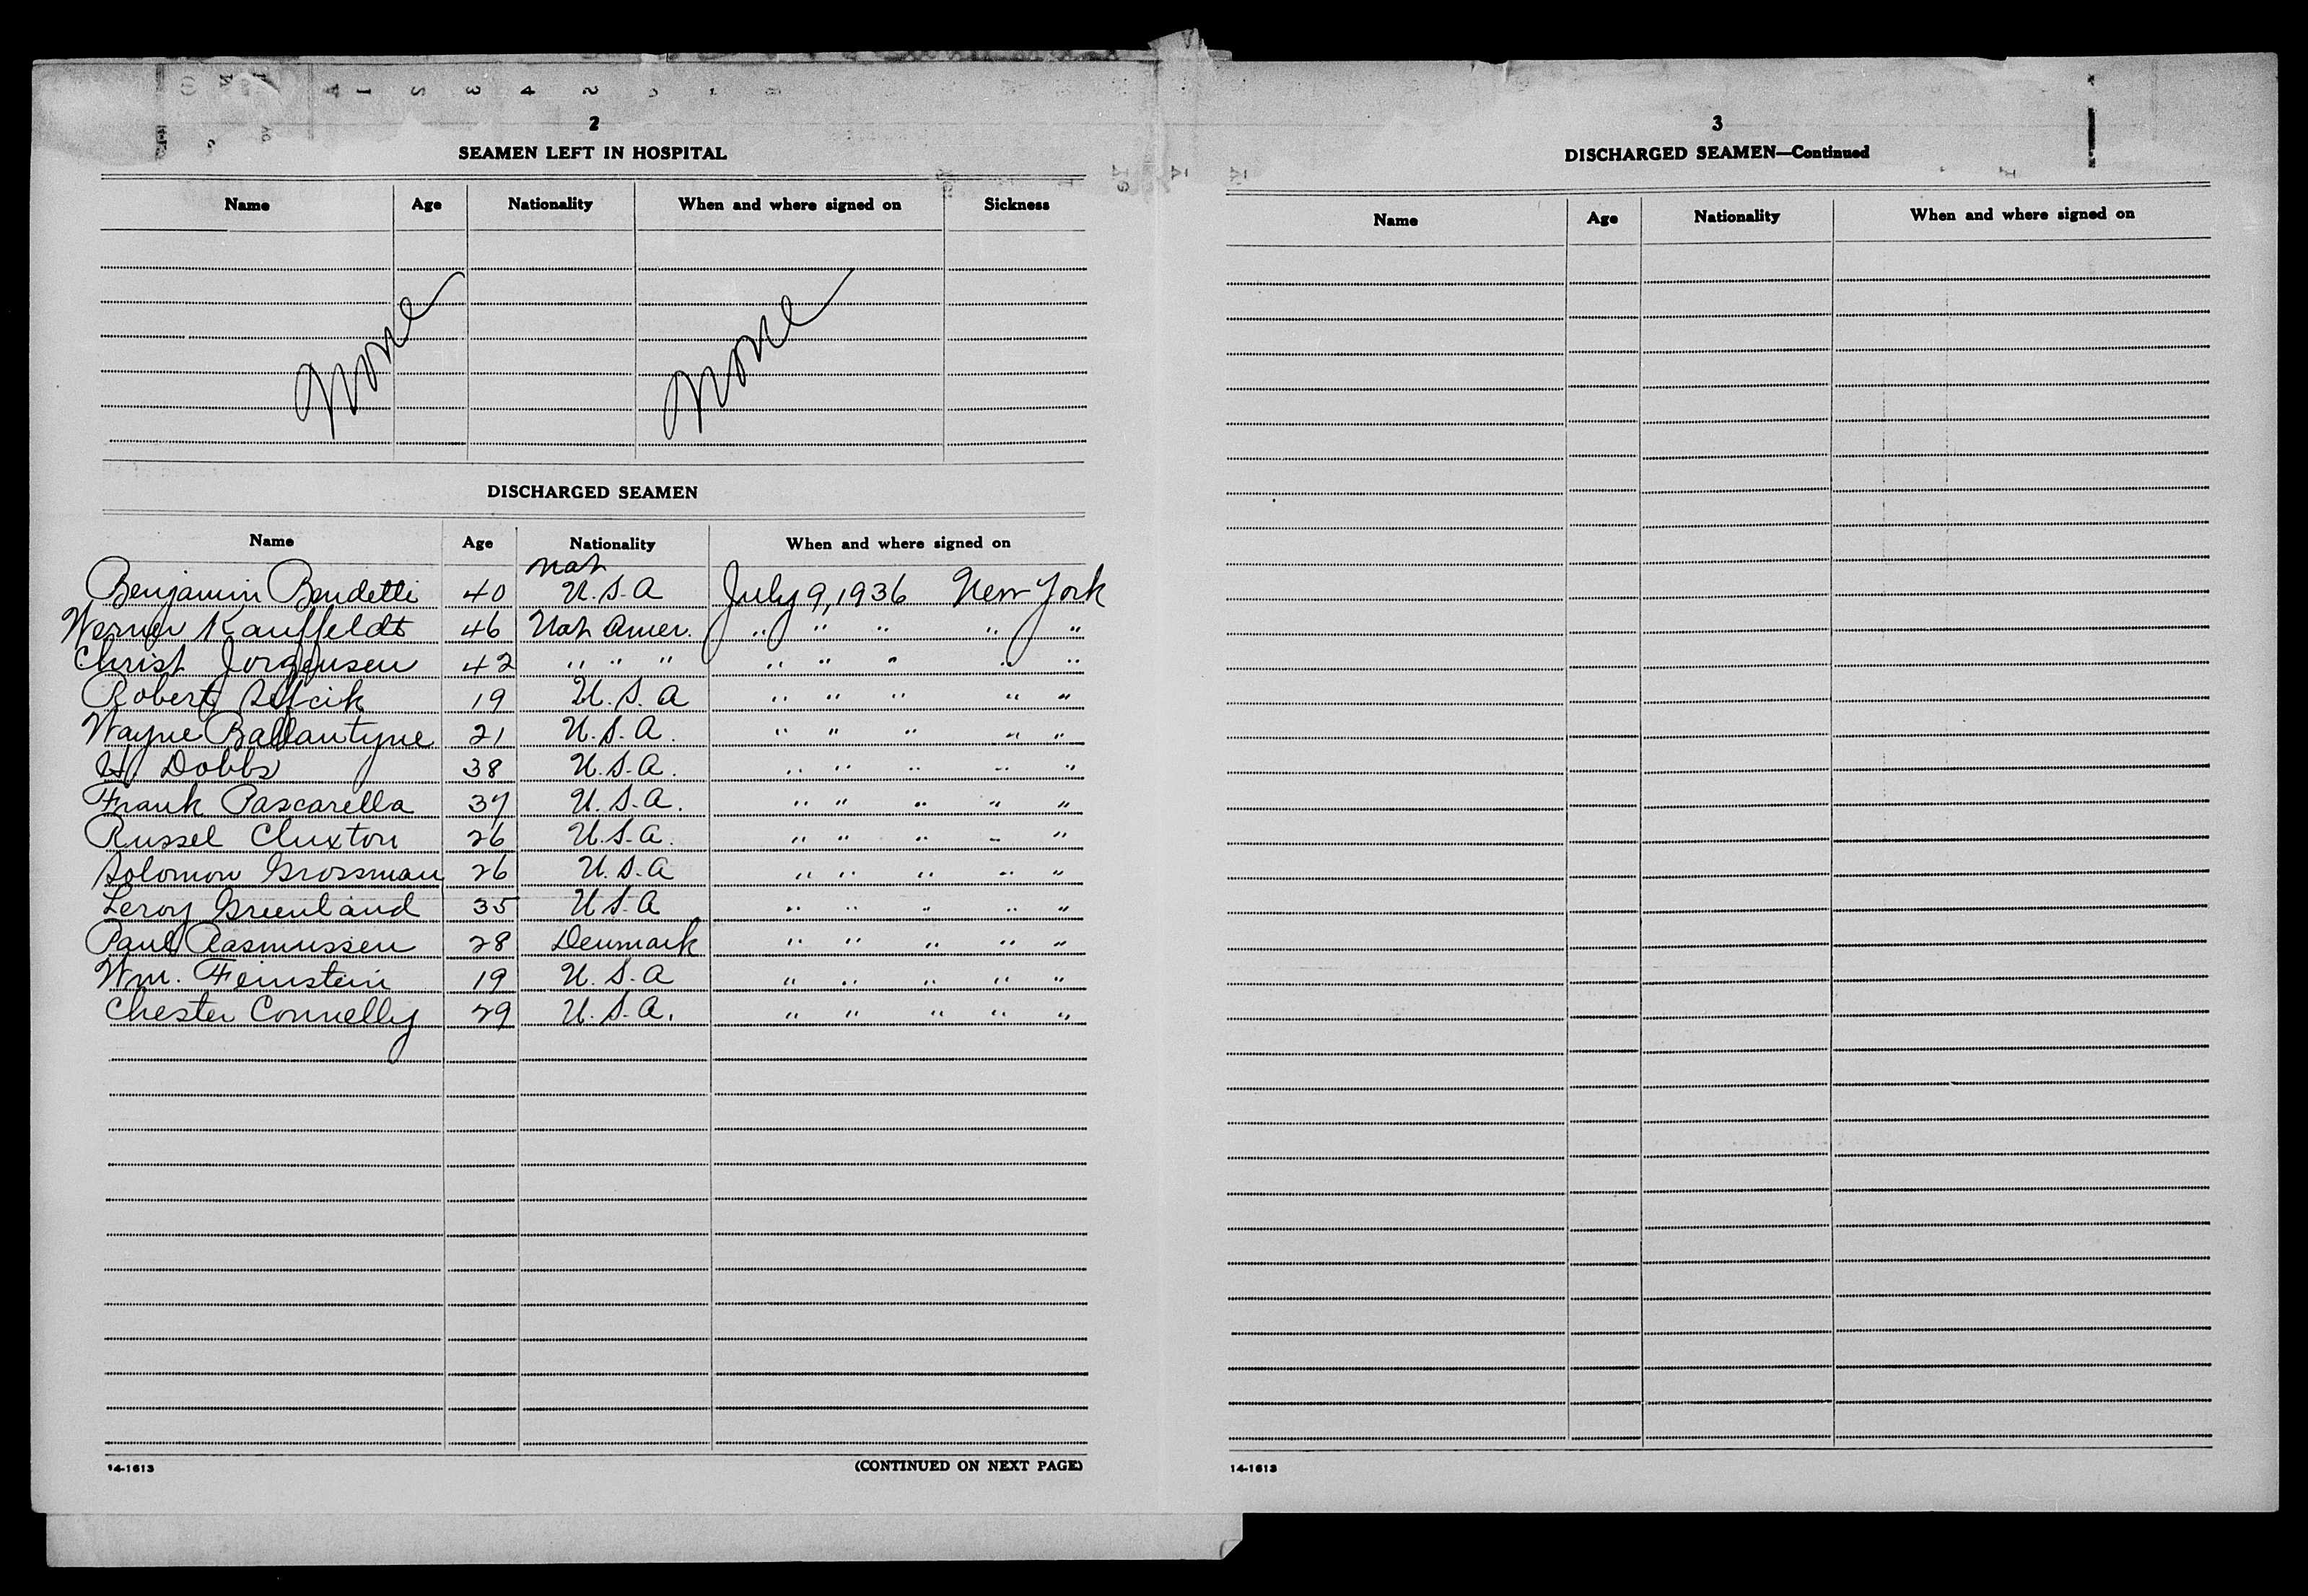 2
SEAMEN LEFT IN HOSPITAL
Name Age Nationality When and where signed on Sickness
None None
DISCHARGED SEAMEN
Name Age Nationality When and where signed on
Nat
Benjamin Bendetti 40 U.S.A July 9, 1936 New York
Werner Kauffeldt 46 Nat Amer. " " " " "
Christ Jorgensen 42 " " " " " " " "
Robert 19 U.S.A " " " " "
Wayne Ballantyne 21 U.S.A. " " " " "
H. Dobbs 38 U.S.A. " " " " "
Frank Pascarella 37 U.S.A. " " " " "
Russel Cluxton 26 U.S.A. " " " " "
Solomon Grossman 26 U.S.A " " " " "
Leroy Greenland 35 U.S.A " " " " "
Paul Rasmussen 28 Denmark " " " " "
Wm. Feinstein 19 U.S.A " " " " "
Chester Connelly 29 U.S.A. " " " " "
14-1613 (CONTINUED ON NEXT PAGE)
3
DISCHARGED SEAMEN—Continued
Name Age Nationality When and where signed on
14-1613